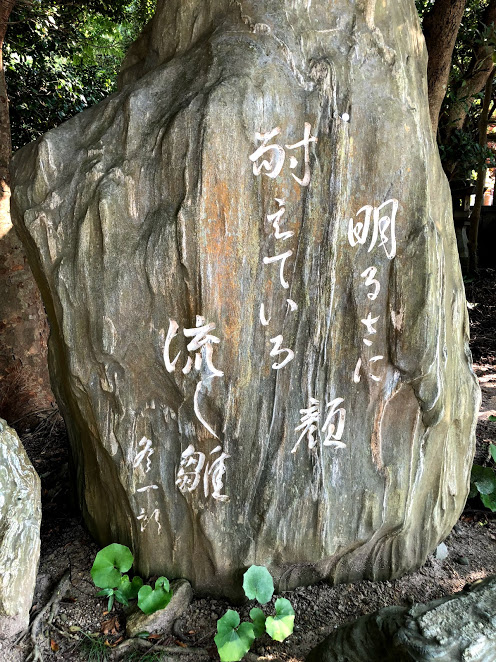 明るさに
顔
耐えている
流し雛
冬一郎